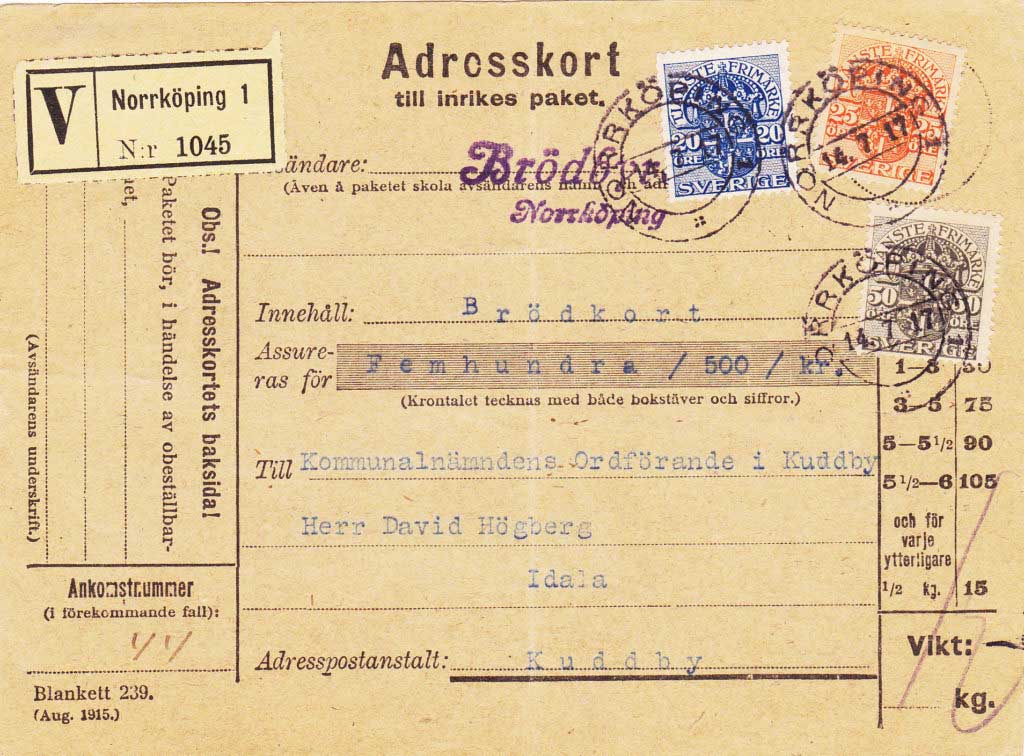 Adresskort
till inrikes paket.
V Norrköping 1
N:r 1045
TJÄNSTE FRIMÄRKE
20 20
ÖRE ÖRE
SVERIGE
NORRKÖPING 1
14.7.17
TJÄNSTE FRIMÄRKE
25 25
ÖRE
SVERIGE
NORRKÖPING 1
14.7.17
TJÄNSTE FRIMÄRKE
50 50
ÖRE ÖRE
SVERIGE
NORRKÖPING 1
14.7.17
sändare:
(Även å paketet skola avsändarens namn och
Norrköping
Innehåll: Brödkort
Assure-
ras för Femhundra / 500 / kr.
(Krontalet tecknas med både bokstäver och siffror.)
Till Kommunalnämndens Ordförande i Kuddby
Herr David Högberg
Idala
Adresspostanstalt: Kuddby
1—3 50
3—5 75
5—5 1/2 90
5 1/2—6 105
och för
varje
ytterligare
1/2 kg. 15
Vikt:
kg.
Obs.! Adresskortets baksida!
Paketet bör, i händelse av obeställbar-
het,
(Avsändarens underskrift.)
Ankomstnummer
(i förekommande fall):
44
Blankett 239.
(Aug. 1915.)